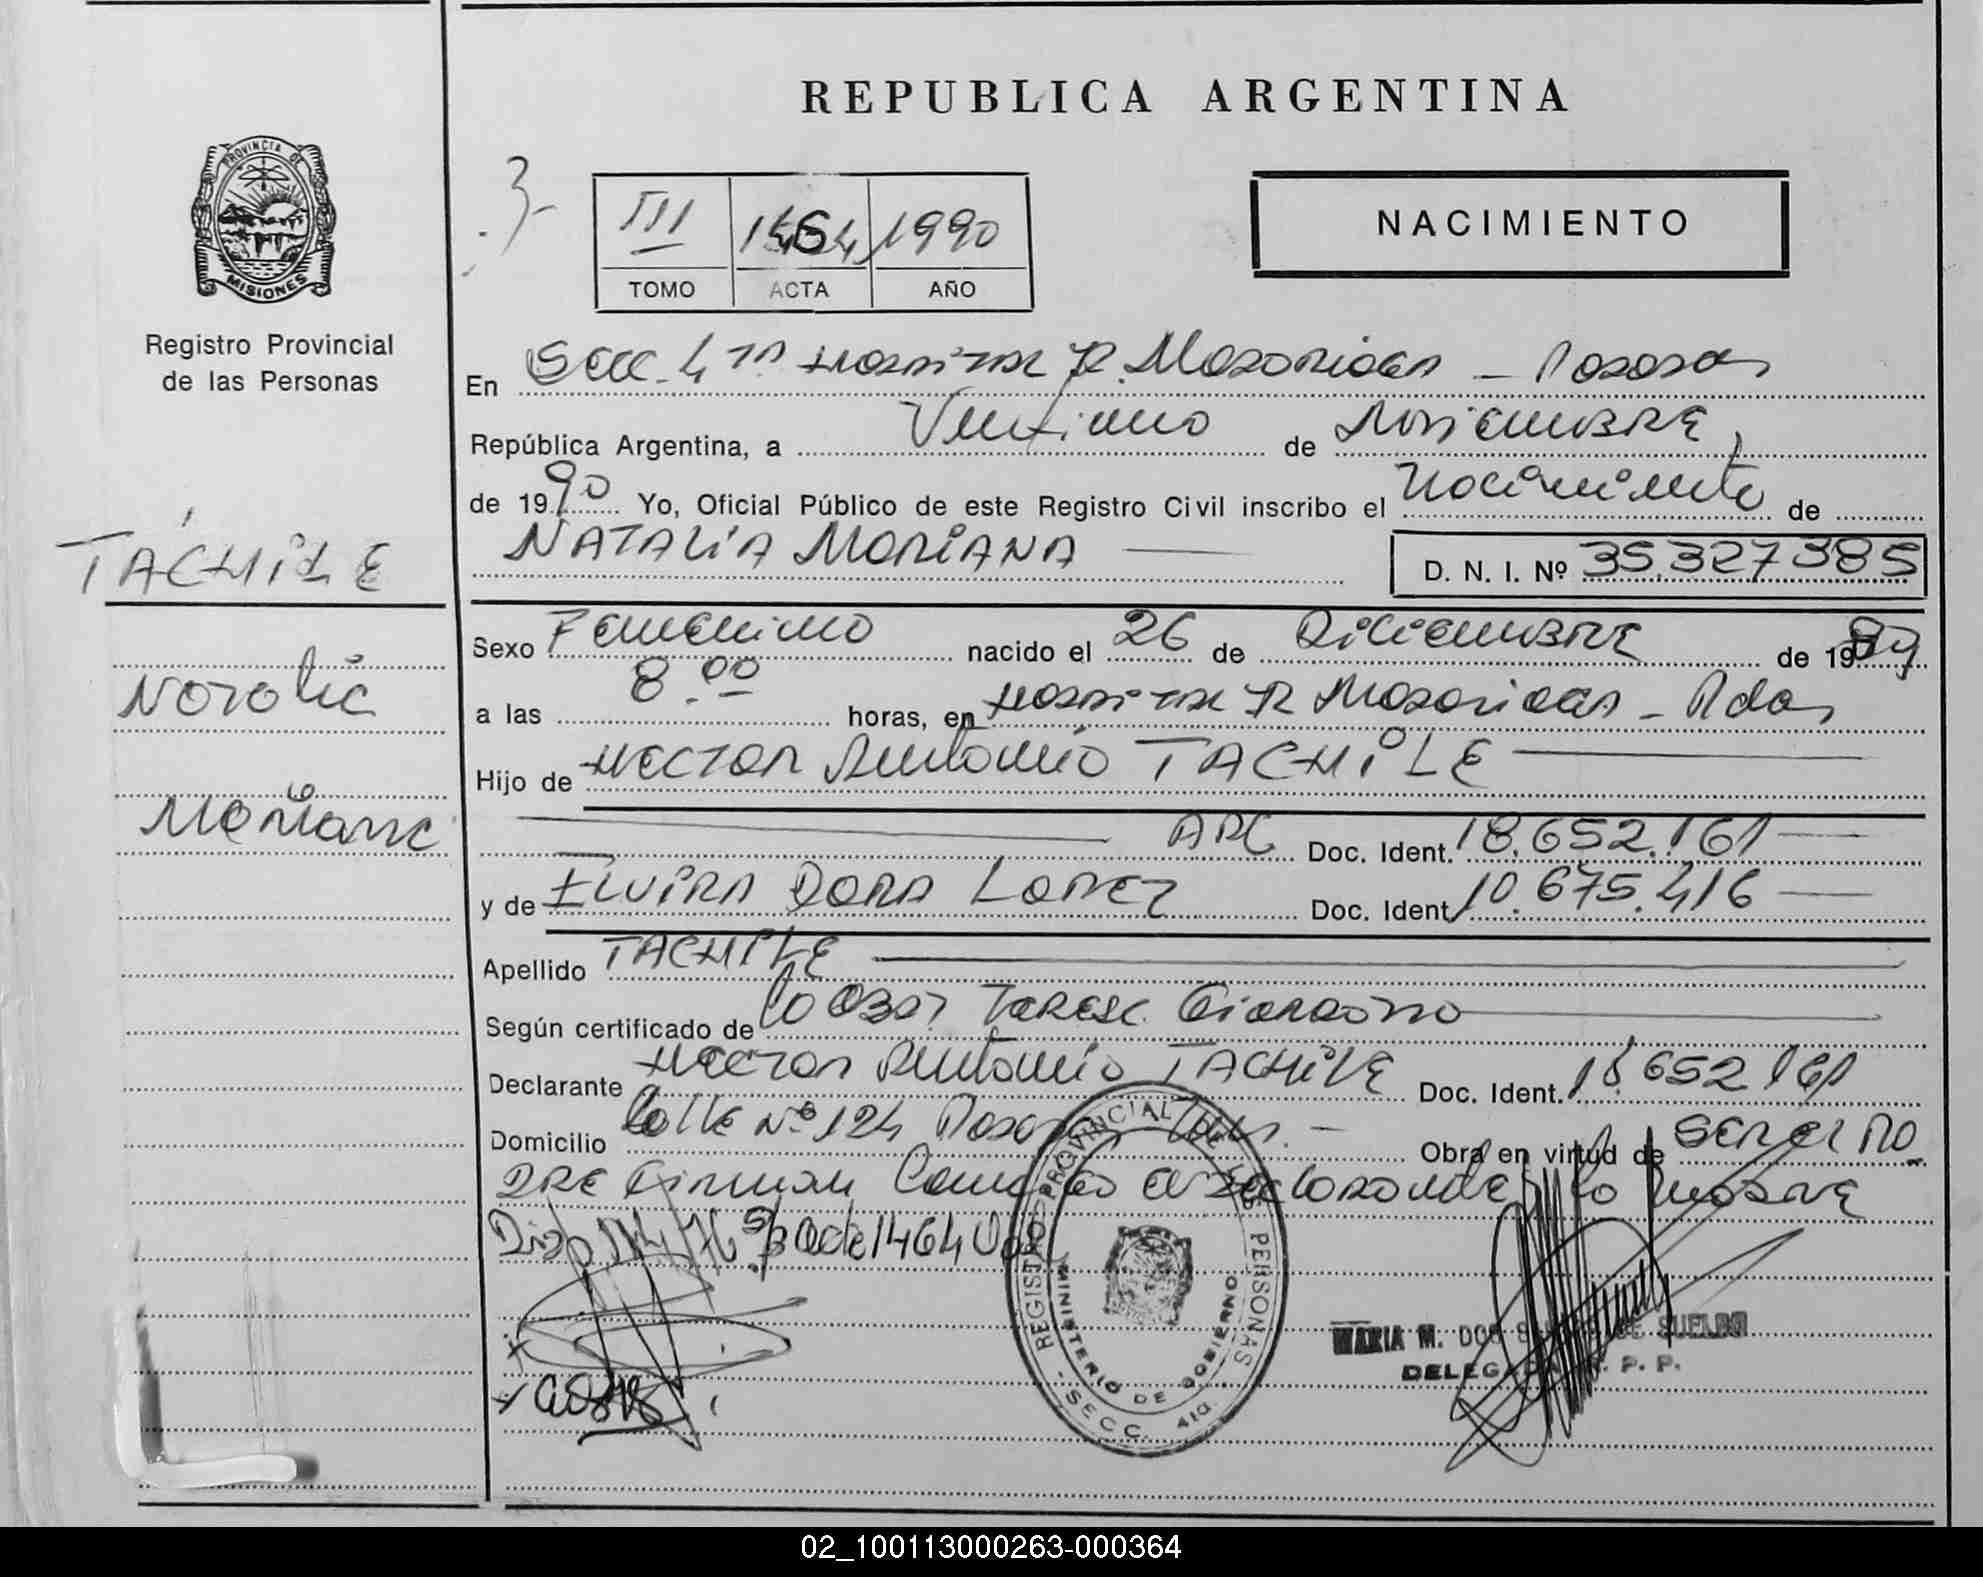 REPUBLICA ARGENTINA
PROVINCIA DE
MISIONES
Registro Provincial
de las Personas
3-
III 1464 1990
TOMO ACTA AÑO
NACIMIENTO
En Secc. 4ta Hospital R. Madariaga - Posadas
República Argentina, a Veintiuno de Noviembre,
de 1990 Yo, Oficial Público de este Registro Civil inscribo el Nacimiento de
NATALIA MARIANA
D. N. I. Nº 35.327.385
TACHILE
Natalia
Mariana
Sexo Femenino nacido el 26 de Diciembre de 1989
a las 8.00 horas, en Hospital R Madariaga - Pdas
Hijo de Hector Antonio TACHILE
ARG Doc. Ident. 18.652.161
y de ELVIRA DORA LOPEZ Doc. Ident. 10.675.416
Apellido TACHILE
Según certificado de la Obst. Teresa
Declarante Hector Antonio TACHILE Doc. Ident. 18.652.161
Domicilio Calle Nº 124 Posadas Obra en virtud de ser el Pa
dre Firman la Madre
1464
REGISTRO PROVINCIAL DE LAS PERSONAS
MINISTERIO DE GOBIERNO
- SECC. 4ta. -
MARIA M. DOS DE SUELDO
DELEGADA R. P. P.
02_100113000263-000364